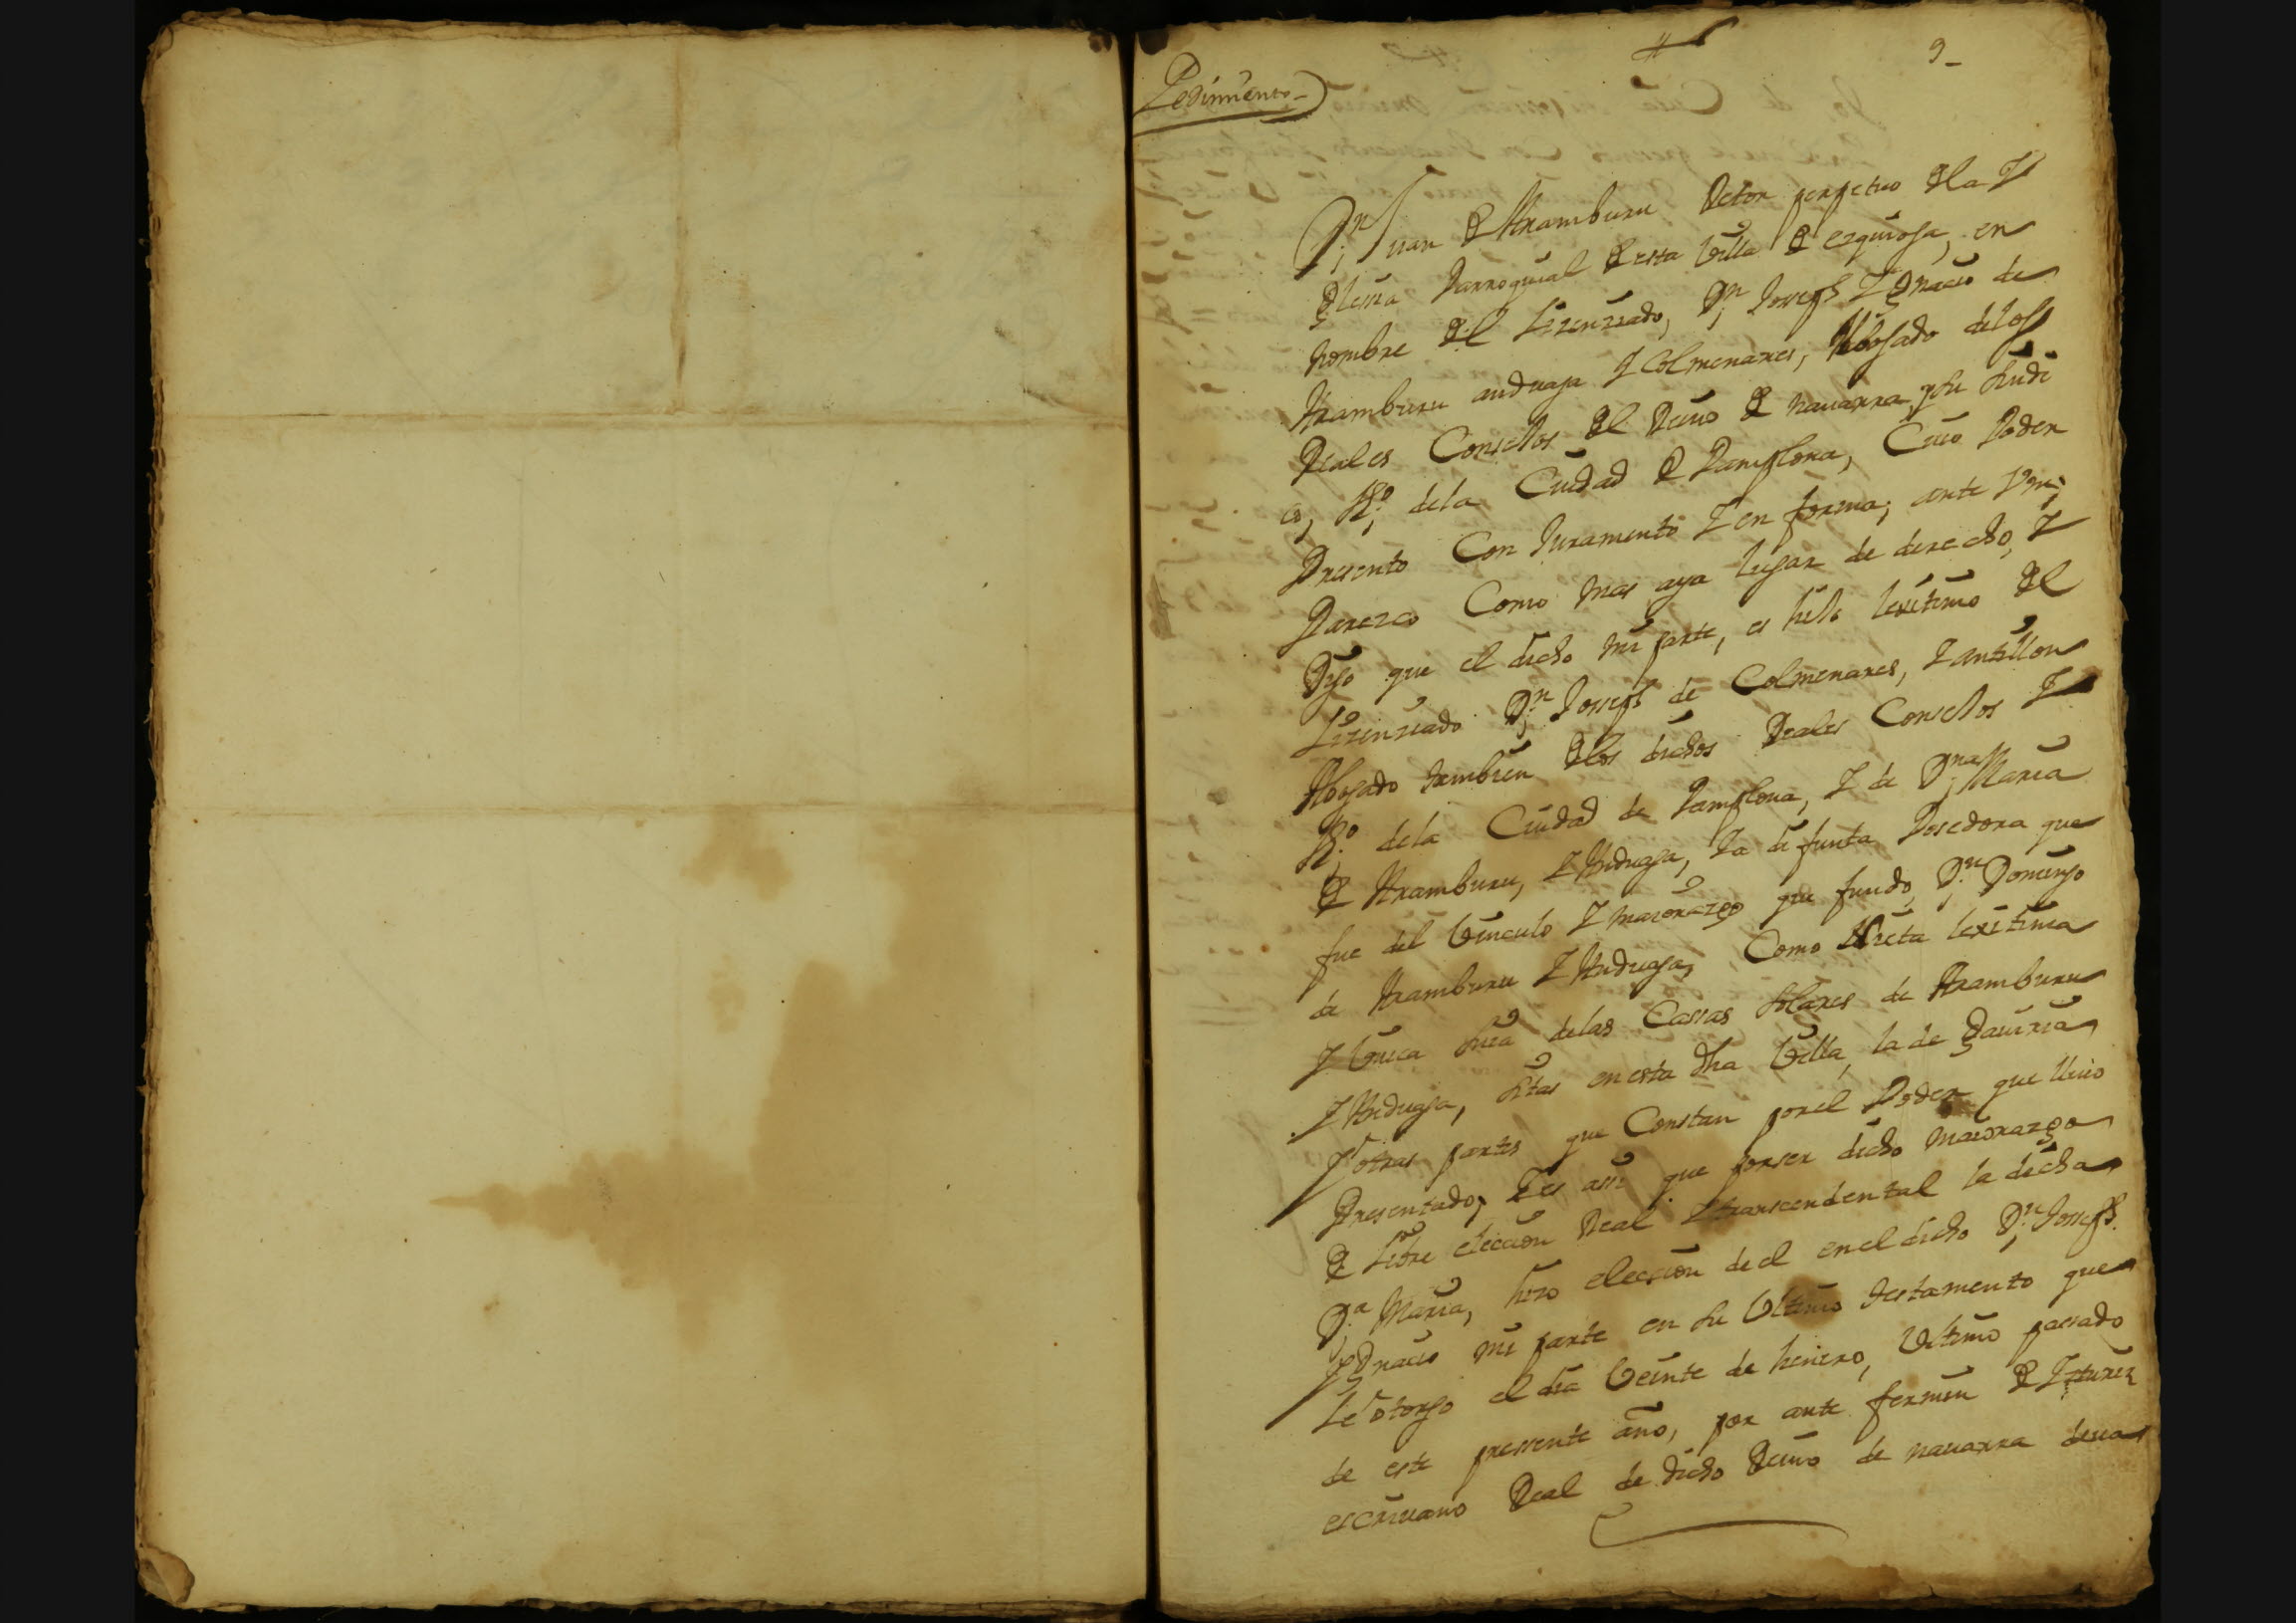 9
Pedimiento
Dn Juan de Aramburu Retor perpetuo de la Y
glesia Parroquial de esta Villa de ezquioga, en
nombre del Lizenziado, Dn Joseph Ygnacio de
Aramburu anduaga Y Colmenares, Abogado delos
Reales Consejos del Reino de nauarra y su Sindi
co, Vº dela Ciudad de Pamplona, Cuio Poder
Presento Con Juramento Y en forma; ante Vm;
Parezco Como mas aya lugar de derecho, Y
Digo que el dicho mi parte, es hijo lexitimo del
Lizenziado Dn Joseph de Colmenares, Y antillon
Abogado tambien de los dichos Reales Consejos Y
Vº dela Ciudad de Pamplona, Y de Dna Maria
de Aramburu, Y Anduaga, Ya difunta Posedora que
fue del Vinculo Y maiorazgo que fundo, Dn Domingo
de Aramburu Y Anduaga, Como Nieta lexitima
Y Vnica Suia delas Cassas Solares de Aramburu
Y Anduaga, Sitas en esta dha Villa, la de Gauiria
Y otras partes que Constan por el Poder que lleuo
Presentado, Y es assi que por ser dicho maiorazgo
de Libre eleccion Real Y transcendental la dicha
Da Maria, hizo eleccion de el en el dicho Dn Joseph
Ygnacio mi parte en su Vltimo testamento que
Le otorgo el dia Veinte de henero, Vltimo passado
de este pressente año, por ante fermin de Yturez
escriuano Real de dicho Reino de nauarra deua